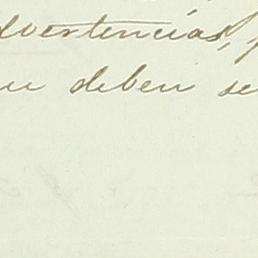 advertencias,
que deben se